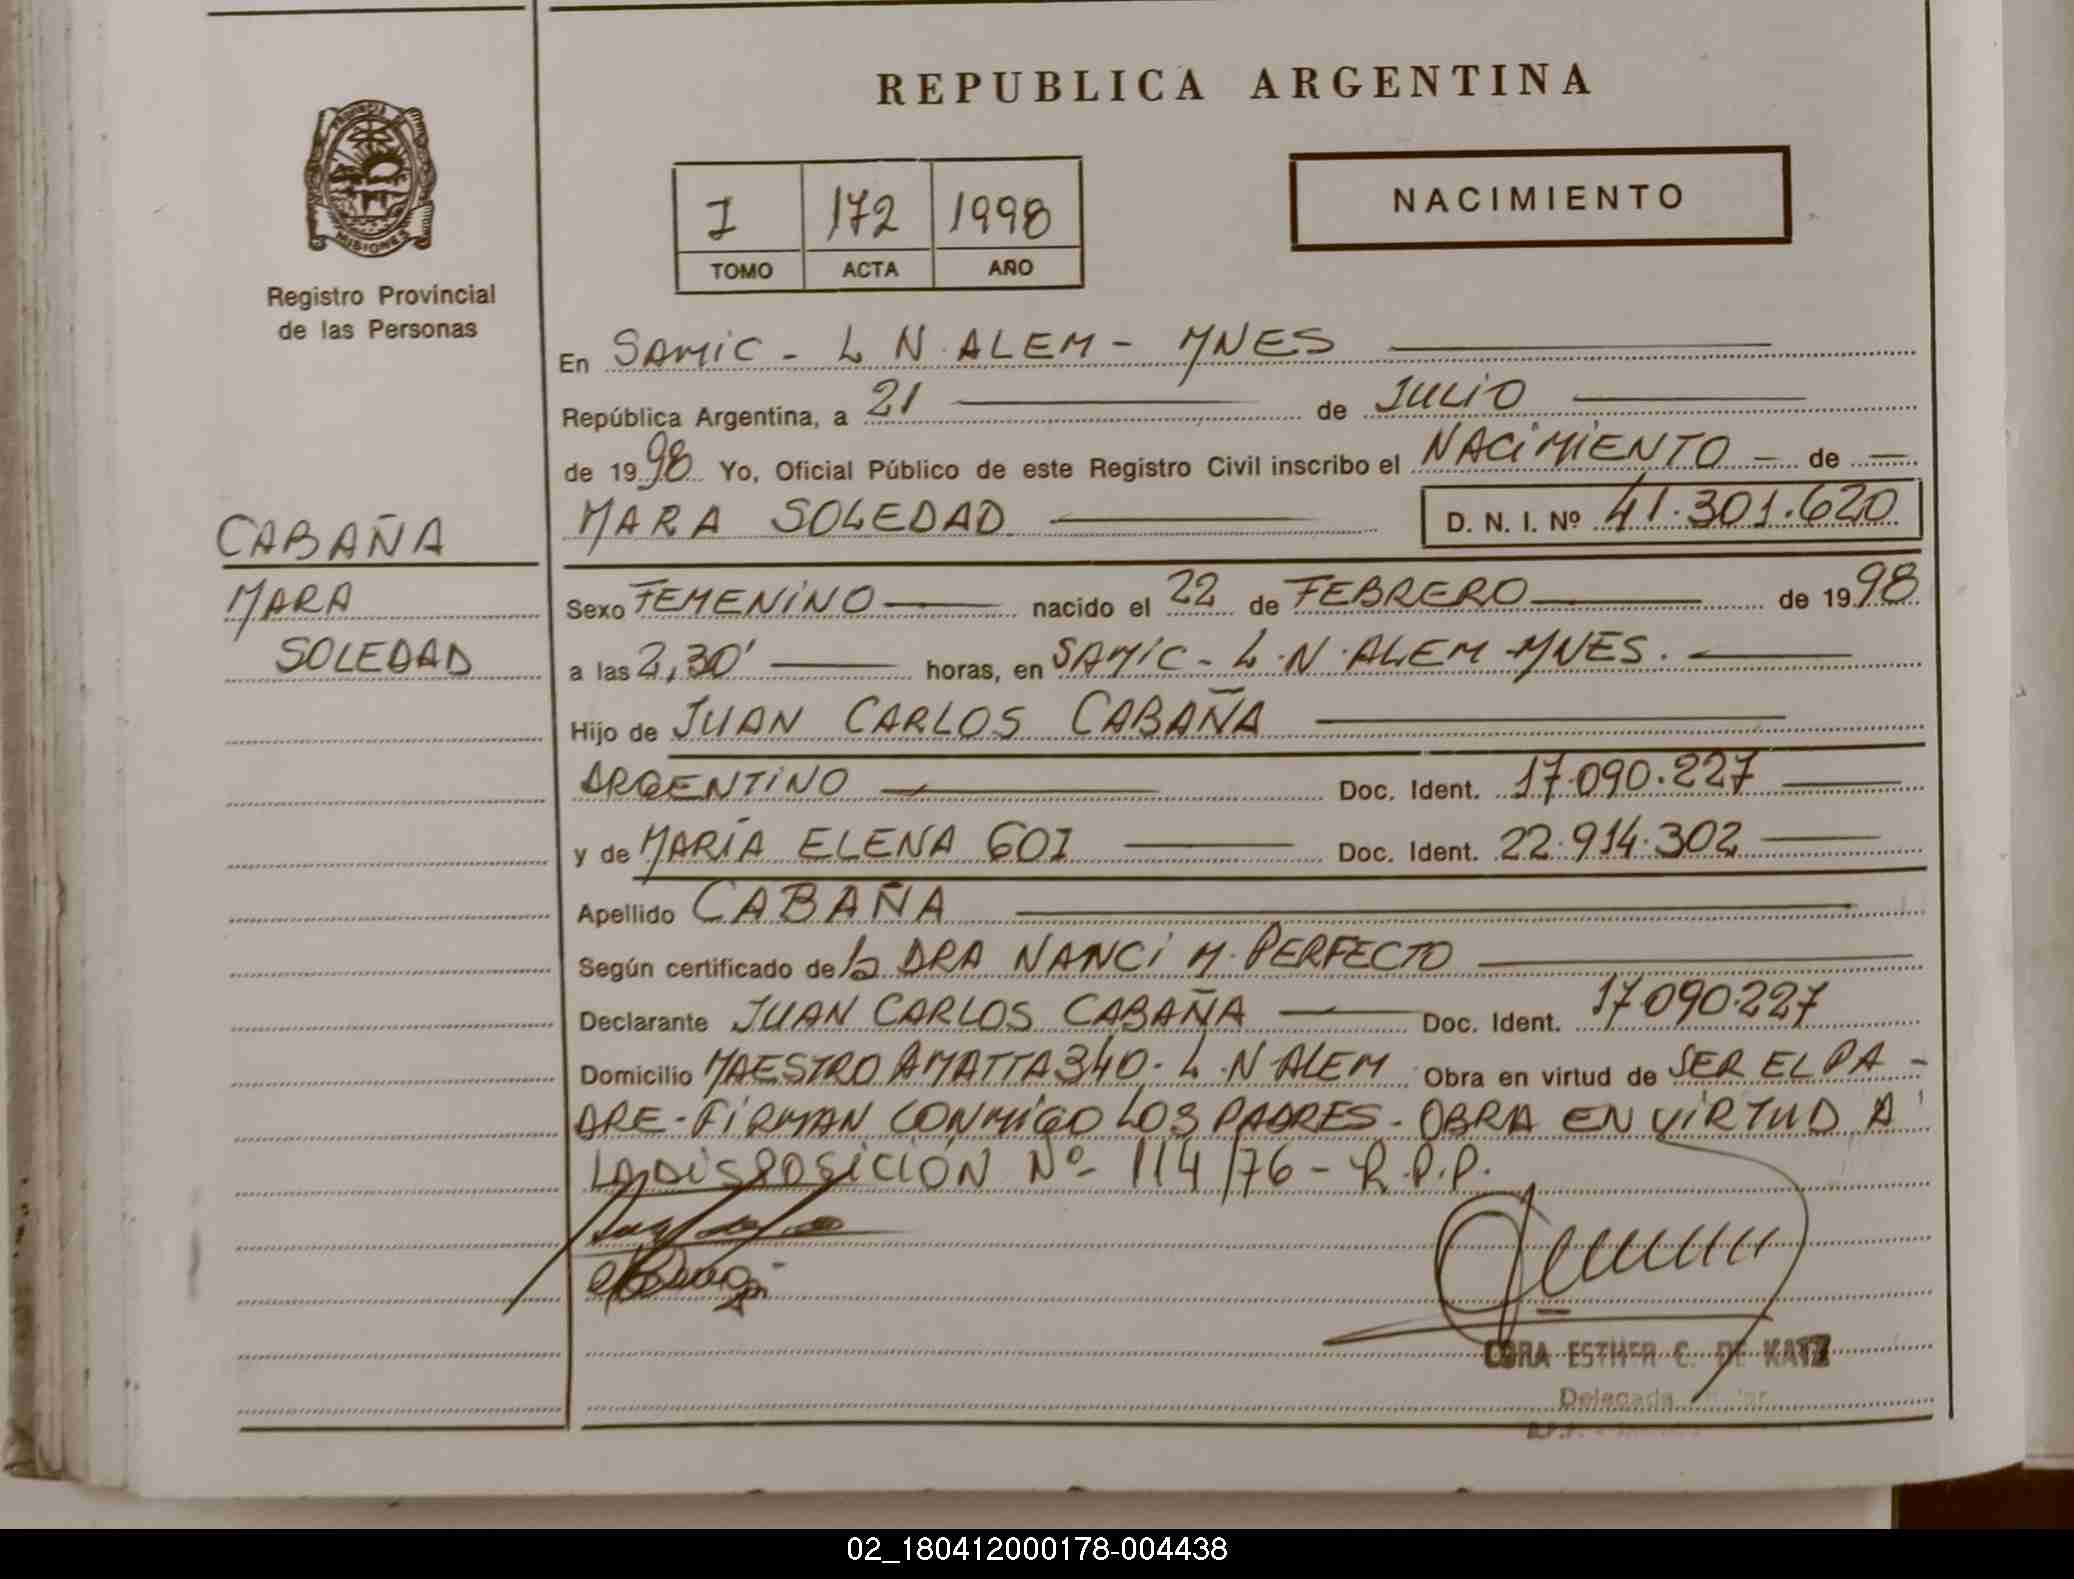 REPUBLICA ARGENTINA
PROVINCIA DE
MISIONES
Registro Provincial
de las Personas
I 172 1998
TOMO ACTA AÑO
NACIMIENTO
En SAMIC - L N ALEM - MNES
República Argentina, a 21 de JULIO
de 1998 Yo, Oficial Público de este Registro Civil inscribo el NACIMIENTO - de -
MARA SOLEDAD D. N. I. Nº 41.301.620
CABAÑA
MARA
SOLEDAD
Sexo FEMENINO nacido el 22 de FEBRERO de 1998
a las 2,30' horas, en SAMIC - L.N. ALEM - MNES.
Hijo de JUAN CARLOS CABAÑA
ARGENTINO Doc. Ident. 17.090.227
y de MARÍA ELENA GOI Doc. Ident. 22.914.302
Apellido CABAÑA
Según certificado de la DRA NANCI M. PERFECTO
Declarante JUAN CARLOS CABAÑA Doc. Ident. 17.090.227
Domicilio MAESTRO AMATTA 340 - L.N ALEM Obra en virtud de SER EL PA -
DRE - FIRMAN CONMIGO LOS PADRES - OBRA EN VIRTUD A
LA DISPOSICIÓN Nº 114/76 - R.P.P.
CORA ESTHER C. DE KATZ
Delegada
02_180412000178-004438